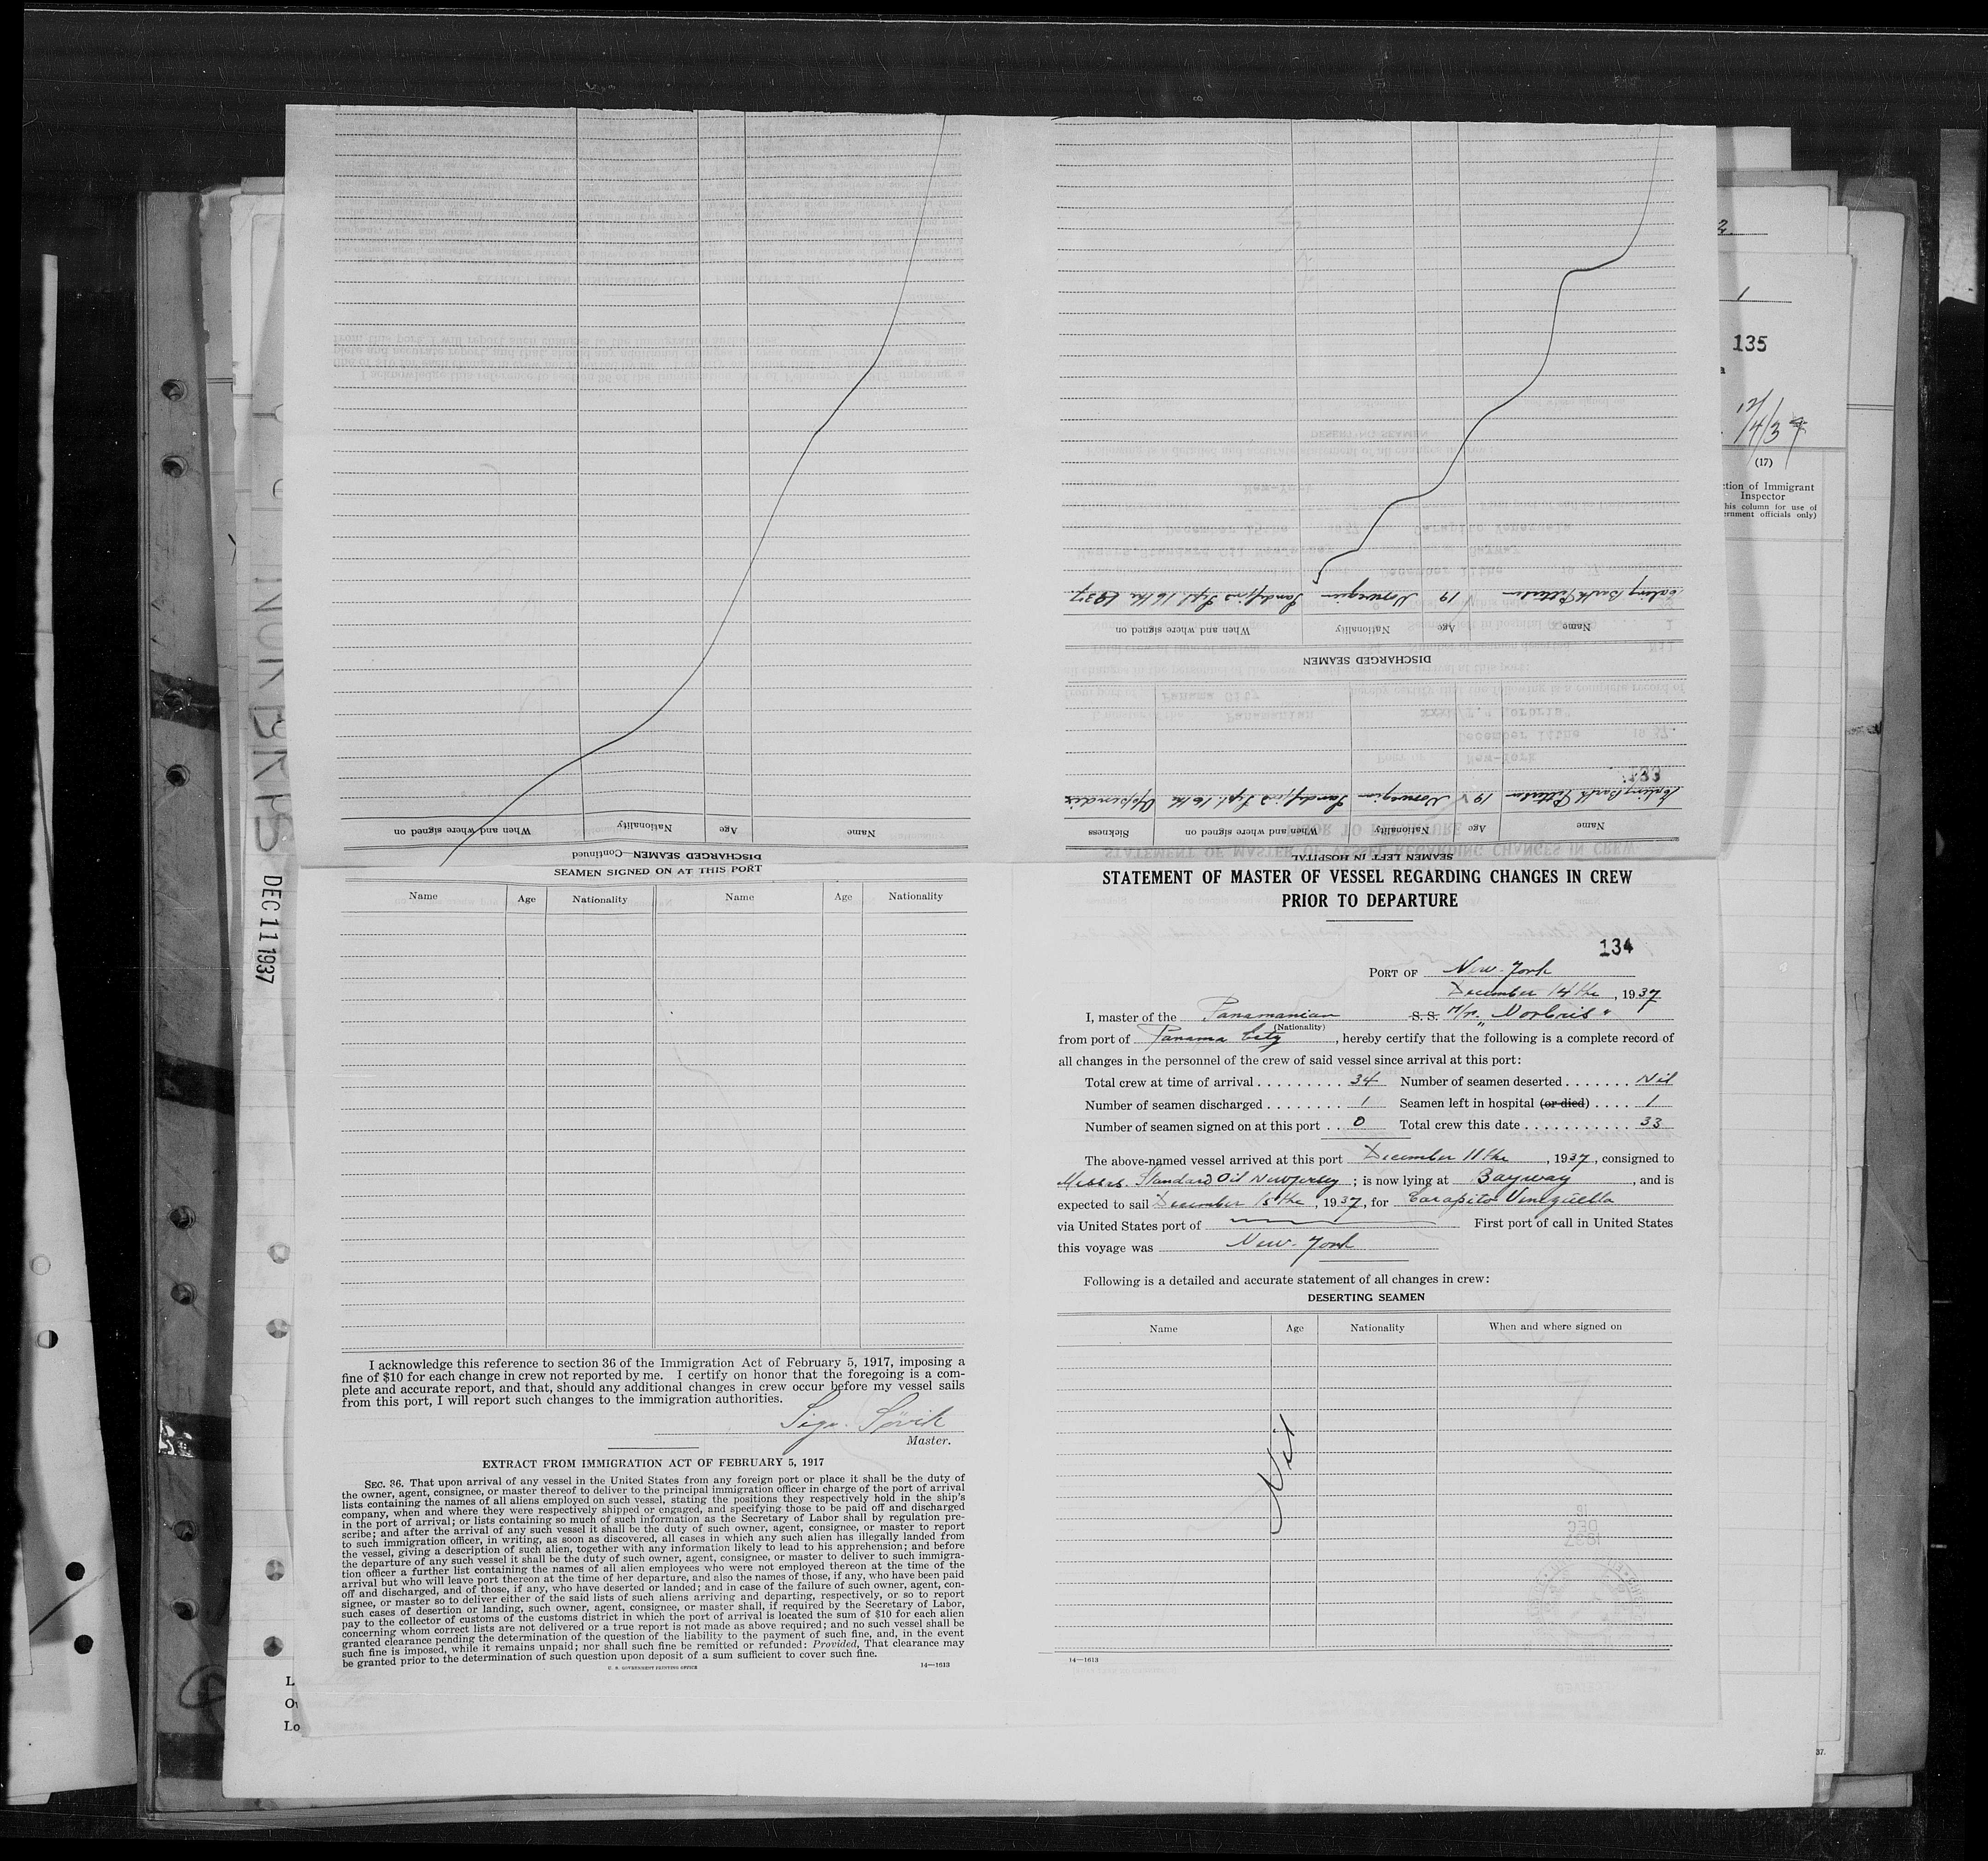 STATEMENT OF MASTER OF VESSEL REGARDING CHANGES IN CREW
PRIOR TO DEPARTURE
134
PORT OF New-York
December 14the, 1937
I, master of the Panamanian S. S. M/S. "Norbris"
(Nationality)
from port of Panama City, hereby certify that the following is a complete record of
all changes in the personnel of the crew of said vessel since arrival at this port:
Total crew at time of arrival . . . . . . . . . 34 Number of seamen deserted . . . . . . . Nil
Number of seamen discharged . . . . . . . . 1 Seamen left in hospital (or died) . . . . 1
Number of seamen signed on at this port . . 0 Total crew this date . . . . . . . . . . . 33
The above-named vessel arrived at this port December 11the, 1937, consigned to
Messrs. Standard Oil Newjersey; is now lying at Bayway, and is
expected to sail December 15the, 1937, for Carapito Venezuella
via United States port of First port of call in United States
this voyage was New-York
Following is a detailed and accurate statement of all changes in crew:
DESERTING SEAMEN
Name Age Nationality When and where signed on
Nil
14—1613
SEAMEN LEFT IN HOSPITAL
Name Age Nationality When and where signed on Sickness
19 Norwegian Sandefjord Sept. 16the
DISCHARGED SEAMEN
Name Age Nationality When and where signed on
19 Norwegian Sandefjord Sept. 16the 1937
DISCHARGED SEAMEN—Continued
Name Age Nationality When and where signed on
SEAMEN SIGNED ON AT THIS PORT
Name Age Nationality Name Age Nationality
I acknowledge this reference to section 36 of the Immigration Act of February 5, 1917, imposing a
fine of $10 for each change in crew not reported by me. I certify on honor that the foregoing is a com-
plete and accurate report, and that, should any additional changes in crew occur before my vessel sails
from this port, I will report such changes to the immigration authorities.
Sigv. Sövik
Master.
EXTRACT FROM IMMIGRATION ACT OF FEBRUARY 5, 1917
SEC. 36. That upon arrival of any vessel in the United States from any foreign port or place it shall be the duty of
the owner, agent, consignee, or master thereof to deliver to the principal immigration officer in charge of the port of arrival
lists containing the names of all aliens employed on such vessel, stating the positions they respectively hold in the ship's
company, when and where they were respectively shipped or engaged, and specifying those to be paid off and discharged
in the port of arrival; or lists containing so much of such information as the Secretary of Labor shall by regulation pre-
scribe; and after the arrival of any such vessel it shall be the duty of such owner, agent, consignee, or master to report
to such immigration officer, in writing, as soon as discovered, all cases in which any such alien has illegally landed from
the vessel, giving a description of such alien, together with any information likely to lead to his apprehension; and before
the departure of any such vessel it shall be the duty of such owner, agent, consignee, or master to deliver to such immigra-
tion officer a further list containing the names of all alien employees who were not employed thereon at the time of the
arrival but who will leave port thereon at the time of her departure, and also the names of those, if any, who have been paid
off and discharged, and of those, if any, who have deserted or landed; and in case of the failure of such owner, agent, con-
signee, or master so to deliver either of the said lists of such aliens arriving and departing, respectively, or so to report
such cases of desertion or landing, such owner, agent, consignee, or master shall, if required by the Secretary of Labor,
pay to the collector of customs of the customs district in which the port of arrival is located the sum of $10 for each alien
concerning whom correct lists are not delivered or a true report is not made as above required; and no such vessel shall be
granted clearance pending the determination of the question of the liability to the payment of such fine, and, in the event
such fine is imposed, while it remains unpaid; nor shall such fine be remitted or refunded: Provided, That clearance may
be granted prior to the determination of such question upon deposit of a sum sufficient to cover such fine.
U. S. GOVERNMENT PRINTING OFFICE 14—1613
NORBRIS
DEC 11 1937
135
(17)
ction of Immigrant
Inspector
his column for use of
ernment officials only)